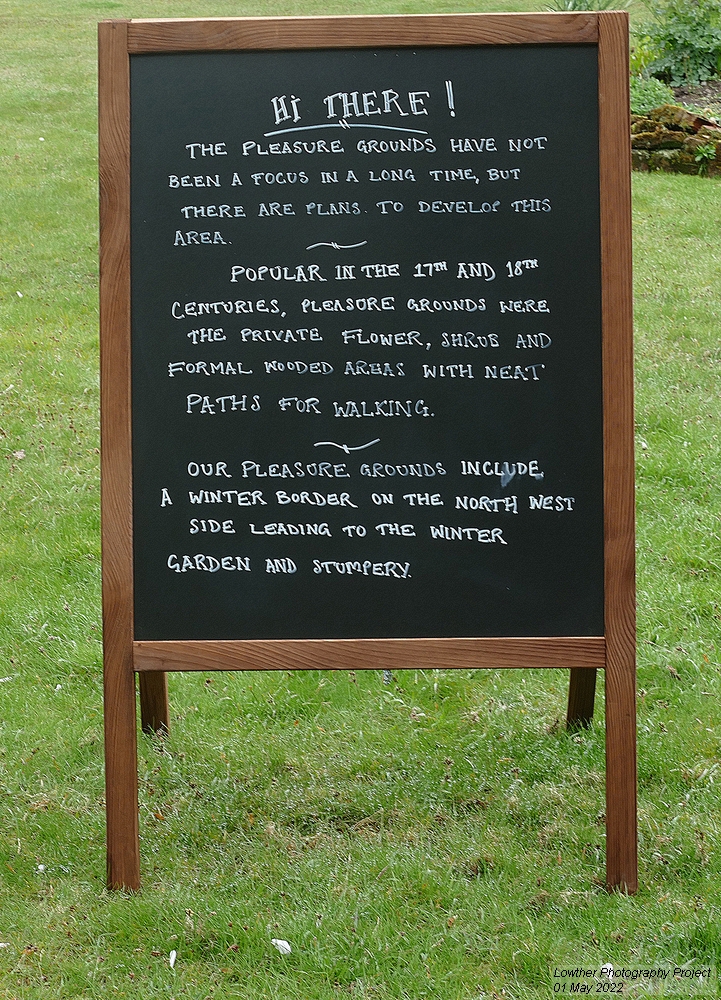 Hi THERE!
THE PLEASURE GROUNDS HAVE NOT
BEEN A FOCUS IN A LONG TIME, BUT
THERE ARE PLANS. TO DEVELOP THIS
AREA.
POPULAR IN THE 17TH AND 18TH
CENTURIES, PLEASURE GROUNDS WERE
THE PRIVATE FLOWER, SHRUB AND
FORMAL WOODED AREAS WITH NEAT
PATHS FOR WALKING.
OUR PLEASURE GROUNDS INCLUDE
A WINTER BORDER ON THE NORTH WEST
SIDE LEADING TO THE WINTER
GARDEN AND STUMPERY.
Lowther Photography Project
01 May 2022